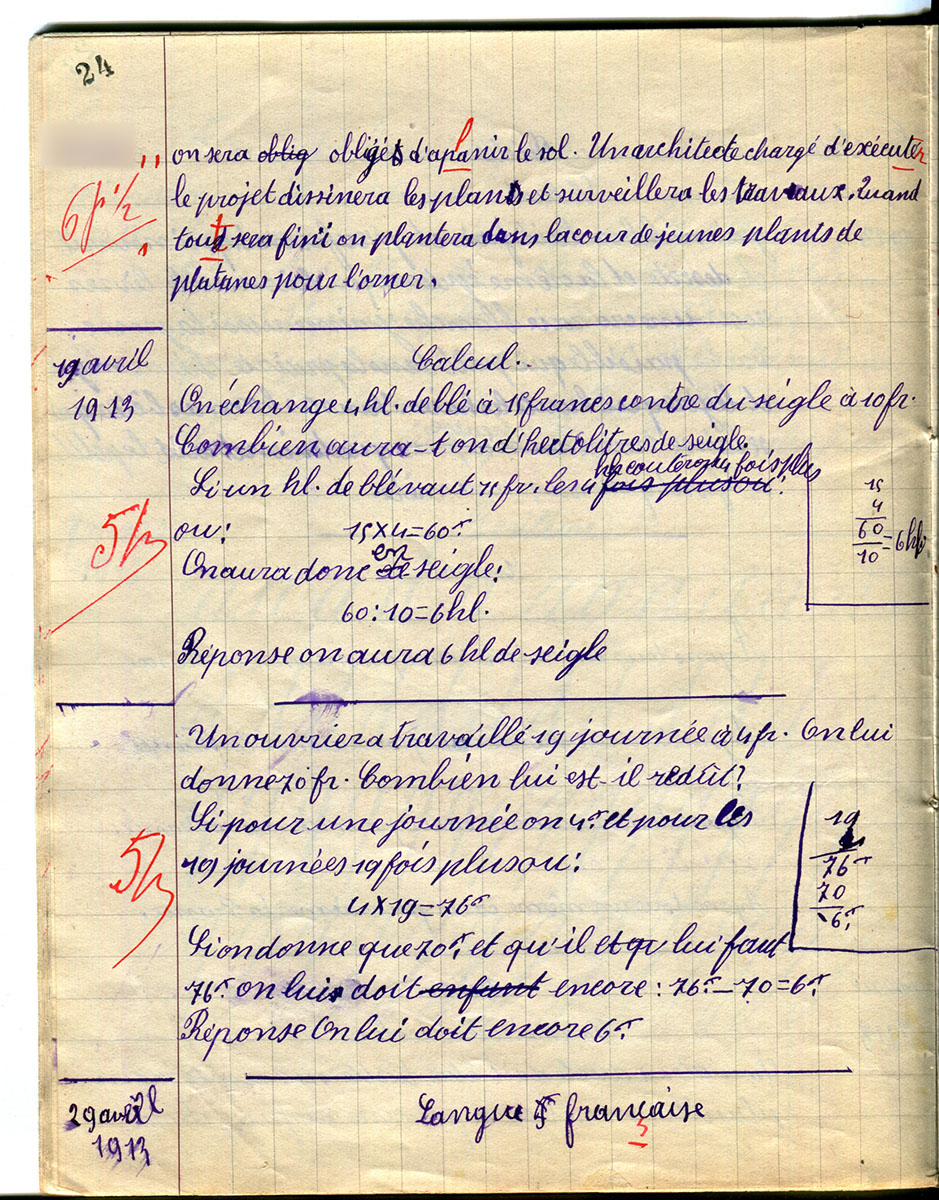 24
on sera oblig obligés d'aplanir le sol. Un architecte chargé d'exécuter
6 f 1/2
le projet dissinera les plans et surveillera les travaux. Quand
tout sera fini on plantera dans la cour de jeunes plants de
platanes pour l'orner.
19 avril
1913
Calcul.
On échange 4 hl. de blé à 15 francs contre du seigle à 10 fr.
Combien aura-t on d'hectolitres de seigle.
hl couteront 4 fois plus
Si un hl. de blé vaut 15 fr. les 4 fois plus ou :
15
4
60
10 = 6 hl
5/5
ou : 15 x 4 = 60 f
en
On aura donc de seigle :
60 : 10 = 6 hl.
Réponse on aura 6 hl de seigle
Un ouvrier a travaillé 19 journée à 4 fr. On lui
donne 70 fr. Combien lui est-il redût ?
Si pour une journée on 4 f. et pour les
19 journées 19 fois plus ou :
19
4
76 f
70
6 f
5/5
4 x 19 = 76 f
Si on donne que 70 f et qu'il et qu lui faut
76 f. on lui doit enfant encore : 76 f. - 70 = 6 f
Réponse On lui doit encore 6 f
29 avril
1913
Langue française